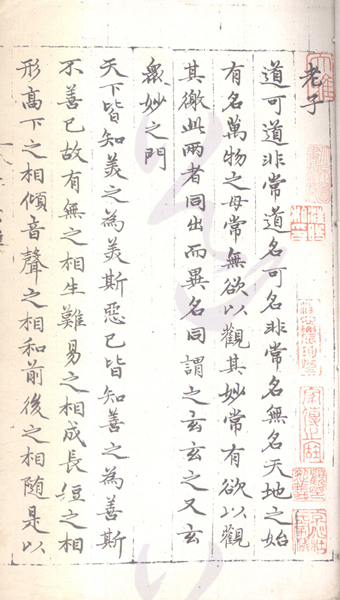 老子
道可道非常道名可名非常名無名天地之始
有名萬物之母常無欲以觀其妙常有欲以觀
其徼此兩者同出而異名同謂之玄玄之又玄
衆妙之門
天下皆知美之為美斯惡已皆知善之為善斯
不善已故有無之相生難易之相成長短之相
形高下之相傾音聲之相和前後之相隨是以